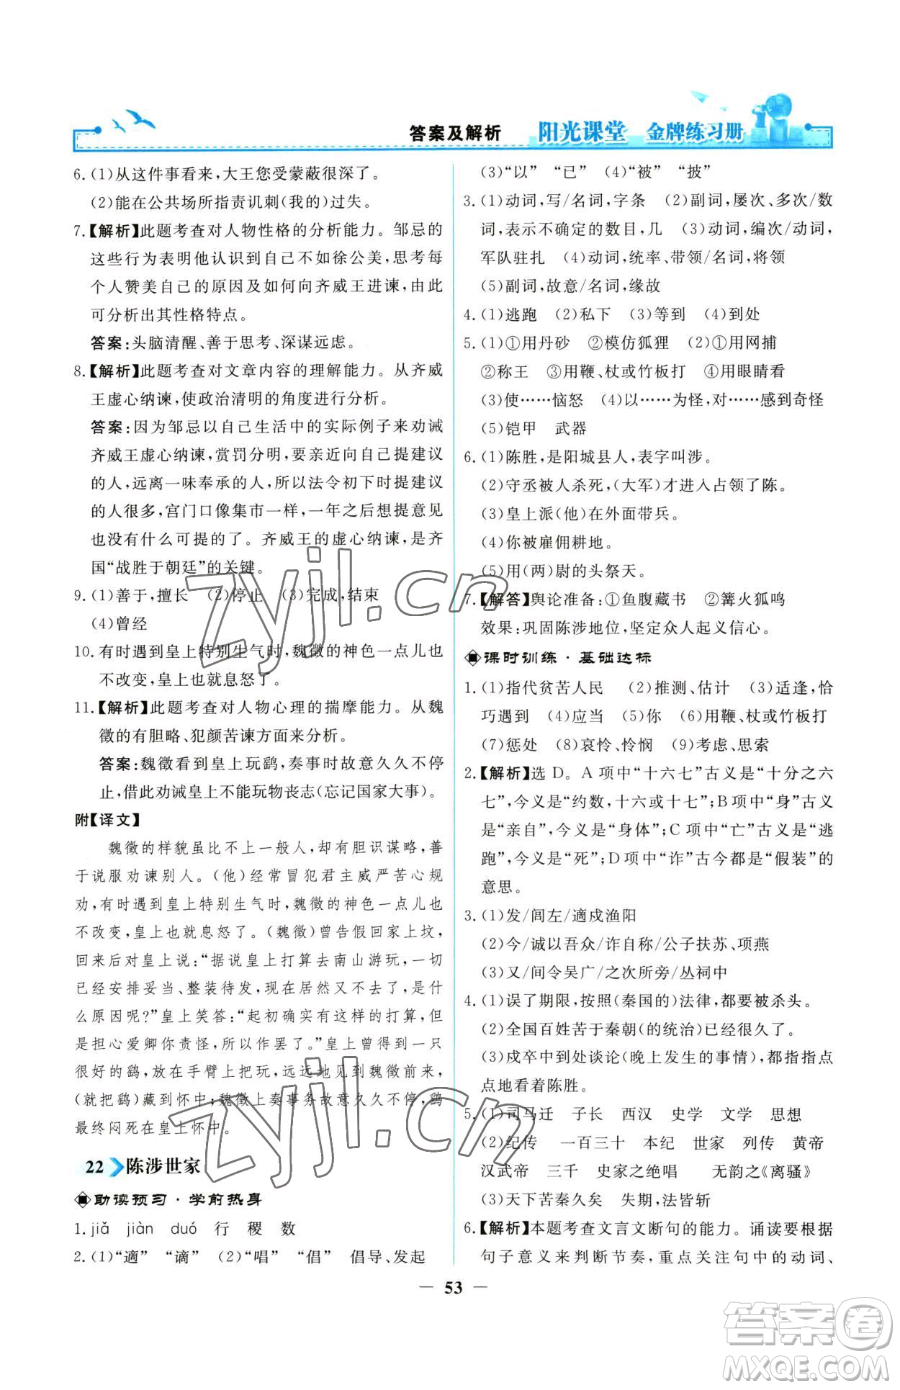 答案及解析 阳光课堂 金牌练习册
6.(1)从这件事看来,大王您受蒙蔽很深。
(2)能在公共场所指责讥刺(我的)过失。
7.【解析】此题考查对人物性格的分析能力。邹忌的
这些行为表明他认识到自己不如徐公美,思考每
个人赞美自己的原因及如何向齐威王进谏,由此
可分析出其性格特点。
答案:头脑清醒、善于思考、深谋远虑。
8.【解析】此题考查对文章内容的理解能力。从齐威
王虚心纳谏,使政治清明的角度进行分析。
答案:因为邹忌以自己生活中的实际例子来劝诫
齐威王虚心纳谏,赏罚分明,要亲近向自己提建议
的人,远离一味奉承的人,所以法令初下提建议的
人很多,宫门口像集市一样,一年之后想提意见也
没有什么可提的了。齐威王的虚心纳谏,是齐国
“战胜于朝廷”的关键。
9.(1)善于,擅长 (2)停止 (3)完成,结束
(4)曾经
10.有时遇到皇上特别生气时,魏徵的神色一点儿也
不改变,皇上也就息怒了。
11.【解析】此题考查对人物心理的揣摩能力。从魏
徵的有胆略、犯颜苦谏方面来分析。
答案:魏徵看到皇上玩鹞,奏事时故意久久不停
止,借此劝诫皇上不能玩物丧志(忘记国家大事)。
附【译文】
魏徵的样貌虽比不上一般人,却有胆识谋略,善
于说服劝谏别人。(他)经常冒犯君主威严苦心规
劝,有时遇到皇上特别生气时,魏徵的神色一点儿也
不改变,皇上也就息怒。(魏徵)曾告假回家上坟,回
来后对皇上说:“据说皇上打算去南山游玩,一切都
已经安排妥当、整装待发,但现在居然又不去了,为
什么原因呢?”皇上笑答:“起初确实有这样的打算,但
是担心爱卿你责怪,所以作罢了。”皇上曾经得到一
只很好的鹞,放在手臂上把玩,远远看到魏徵前来,
(便把鹞)藏到怀中。魏徵上奏事务故意久久不停,鹞
最终闷死在皇上怀中。
22 陈涉世家
助读预习·学前热身
1.jiǎ jiàn duó 行 稷 数
2.(1)“適” “谪” (2)“唱” “倡” 倡导、发起
(3)“以” “已” (4)“被” “披”
3.(1)动词,写/名词,字条 (2)副词,屡次、多次/数
词,表示不确定的数目,几 (3)动词,编次/动词,
军队驻扎 (4)动词,统率、带领/名词,将领
(5)副词,故意/名词,缘故
4.(1)逃跑 (2)私下 (3)等到 (4)到处
5.(1)①用丹砂 ②模仿狐狸 (2)①用网捕
②称王 ③用鞭、杖或竹板打 ④用眼睛看
(3)使……恼怒 (4)以……为怪,对……感到奇怪
(5)铠甲 武器
6.(1)陈胜,是阳城县人,表字叫涉。
(2)守丞被杀死,(大军)才进入占领了陈。
(3)皇上派(他)在外面带兵。
(4)你被雇佣耕地。
(5)用(两)尉的头祭天。
7.【解答】舆论准备:①鱼腹藏书 ②篝火狐鸣
效果:巩固陈涉地位,坚定众人起义信心。
课时训练·基础达标
1.(1)指代贫苦人民 (2)推测、估计 (3)适逢,恰
巧遇到 (4)应当 (5)你 (6)用鞭、杖或竹板打
(7)惩处 (8)哀怜、怜悯 (9)考虑、思索
2.【解析】选 D。A 项中“十六七”古义是“十分之六
七”,今义是“约数,十六或十七”;B 项中“身”古义
是“亲自”,今义是“身体”;C 项中“亡”古义是“逃
跑”,今义是“死”;D 项中“诈”古今都是“假装”的
意思。
3.(1)发/闾左/適戍渔阳
(2)今/诚以吾众/诈自称/公子扶苏、项燕
(3)又/间令吴广/之次所旁/丛祠中
4.(1)误了期限,按照(秦国的)法律,都要被杀头。
(2)全国百姓苦于秦朝(的统治)已经很久了。
(3)戍卒中到处谈论(晚上发生的事情),都指指点
点地看着陈胜。
5.(1)司马迁 子长 西汉 史学 文学 思想
(2)纪传 一百三十 本纪 世家 列传 黄帝
汉武帝 三千 史家之绝唱 无韵之《离骚》
(3)天下苦秦久矣 失期,法皆斩
6.【解析】本题考查文言文断句的能力。诵读要根据
句子意义来判断节奏,重点关注句中的动词、
53
zyjl.cn
zyjl.cn
答案圈
MXQE.COM